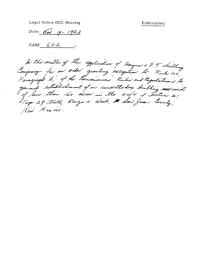 Legal Notice OCC Hearing
Publication:
Date: Nov 19 - 1953
CASE 602
In the matter of the application of Haynes & V. T. Drilling
Company for an order granting exception to Rule 104,
Paragraph of the Commission Rules and Regulations to
permit establishment of an unorthodox drilling unit
of less than 160 acres in the of Section 21
Twp 29 North, Range 11 West, San Juan County,
New Mexico.